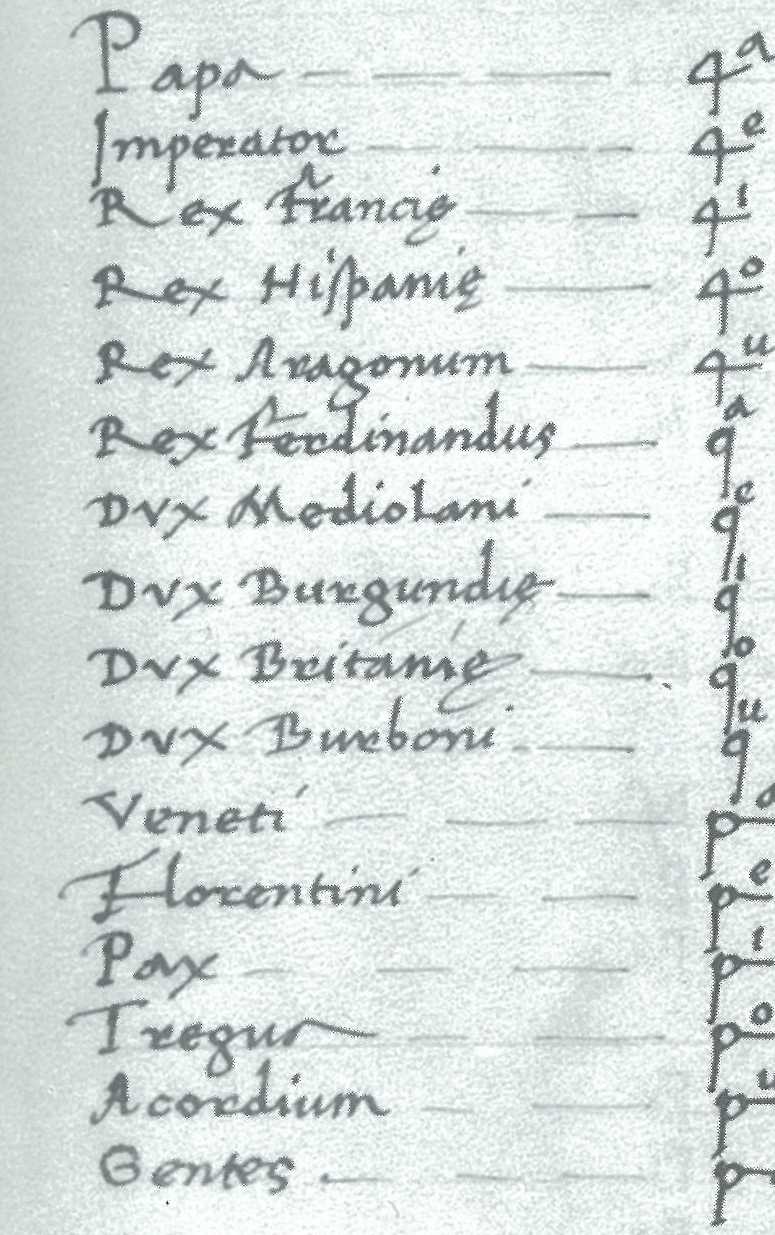 Papa — — — 4ᵃ
Imperator — — — 4ᵉ
Rex Francię — — 4ⁱ
Rex Hiſpanię — 4ᵒ
Rex Aragonum — 4ᵘ
Rex Ferdinandus — qᵃ
Dvx Mediolani — qᵉ
Dvx Burgundię — qⁱ
Dvx Britanię — qᵒ
Dvx Burboni — qᵘ
Veneti — — — pᵃ
Florentini — — pᵉ
Pax — — — pⁱ
Tregua — — pᵒ
Acordium — — pᵘ
Gentes . — — — p